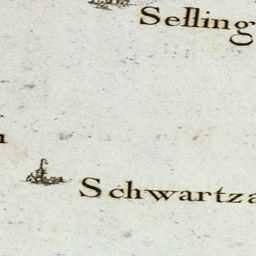 Selling
Schwartza